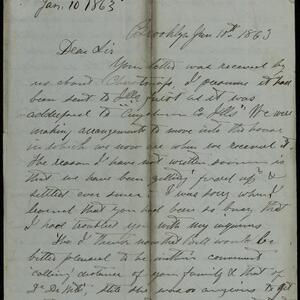 Jan. 10 1863
Brooklyn Jan 10th 1863
Dear Sir
Your letter was received by
us about Christmas, I presume it had
been sent to Ills first as it was
addressed to Co Ills" We were
making arrangements to move into the house
in which we now are when we received it
The reason I have not written sooner is
that we have been getting "fixed up" &
settled ever since. I was sorry when I
learned that you had been so busy, that
I had troubled you with my inquiries
Tho I think now that Bell would be
better pleased to be within convenient
"calling" distance of your family & that of
Dr De Witt, still she was so anxious to get